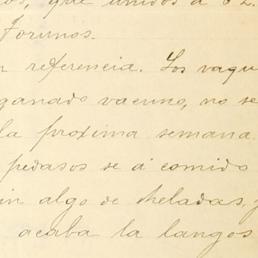 os, que unidos a 62.
Forunos.
n referencia. Los vaqu
ganado vacuno, no se
la proxima semana.
pedasos se á comido
in algo de heladas, y
acaba la langos